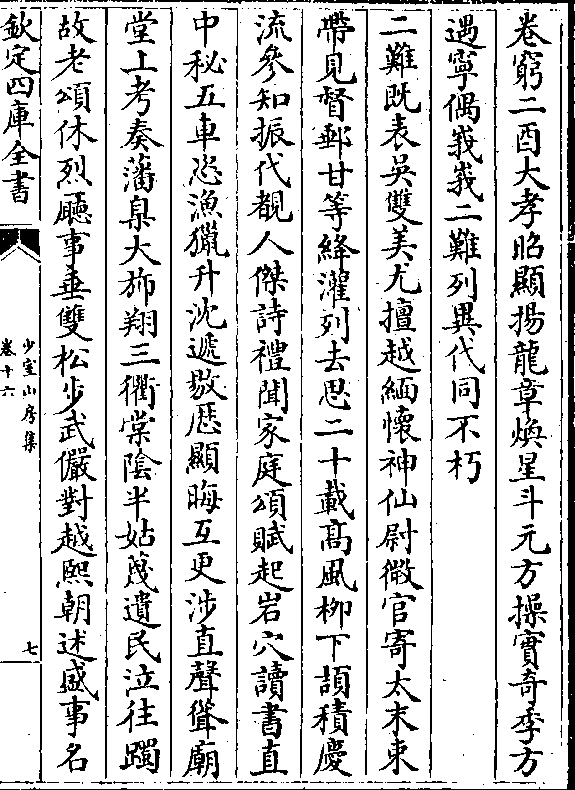 卷窮二酉大孝昭顯揚龍章煥星斗元方操實奇季方
遇寧偶義義二難列異代同不朽
二難既表吳雙美尤擅越緬懷神仙尉微官寄太末束
帶見督郵甘等絳灌列去思二十載高風柳下頡積慶
流參知振代覩人傑詩禮聞家庭頌賦起岩穴讀書直
中秘五車恣漁獵升沈遞敭歴顯晦互更涉直聲聳廟
堂上考奏藩臬大斾翔三衢棠陰半姑蔑遺民泣往躅
故老頌休烈廳事垂雙松步武儼對越熙朝述盛事名
欽定四庫全書
少室山房集
卷十六
七